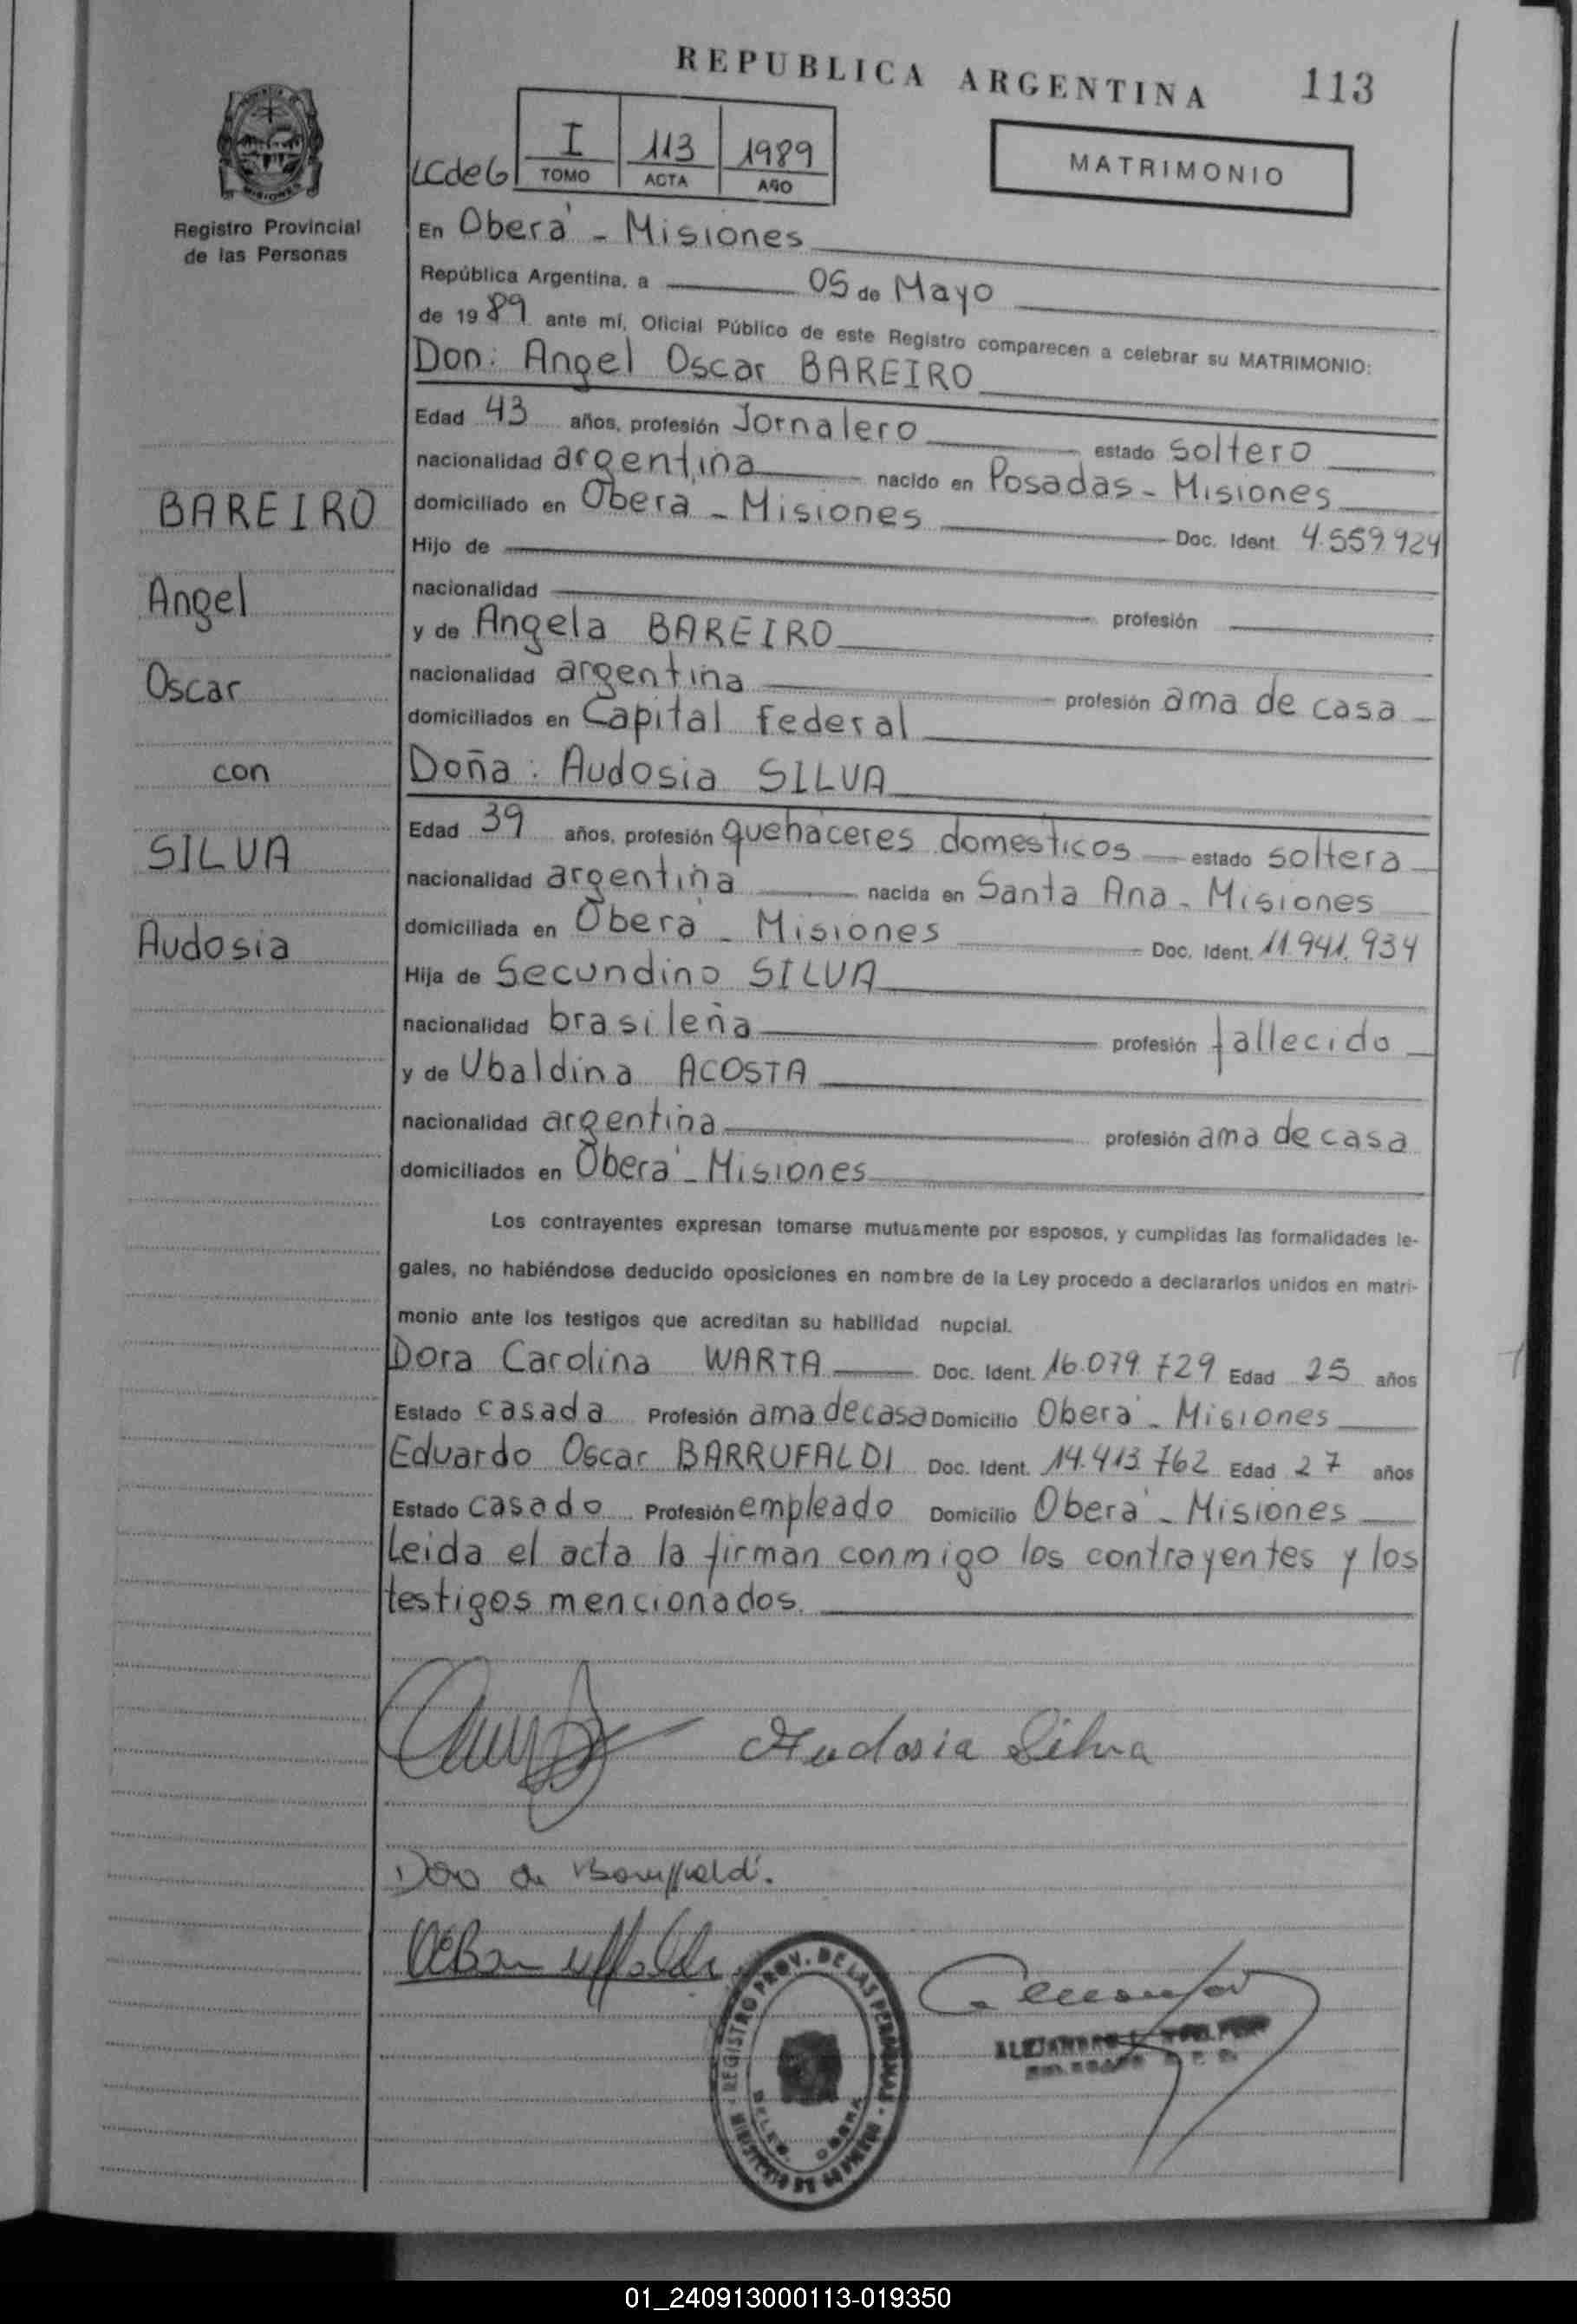 REPUBLICA ARGENTINA 113
LCdeG I TOMO 113 ACTA 1989 AÑO
MATRIMONIO
MISIONES
Registro Provincial
de las Personas
En Oberá - Misiones
República Argentina, a 05 de Mayo
de 1989 ante mí, Oficial Público de este Registro comparecen a celebrar su MATRIMONIO:
Don: Angel Oscar BAREIRO
Edad 43 años, profesión Jornalero estado soltero
nacionalidad argentina nacido en Posadas - Misiones
domiciliado en Oberá - Misiones Doc. Ident. 4.559.924
Hijo de
nacionalidad profesión
y de Angela BAREIRO
nacionalidad argentina profesión ama de casa
domiciliados en Capital federal
Doña: Audosia SILVA
Edad 39 años, profesión quehaceres domésticos estado soltera
nacionalidad argentina nacida en Santa Ana - Misiones
domiciliada en Oberá - Misiones Doc. Ident. 11.941.934
Hija de Secundino SILVA
nacionalidad brasileña profesión fallecido
y de Ubaldina ACOSTA
nacionalidad argentina profesión ama de casa
domiciliados en Oberá - Misiones
Los contrayentes expresan tomarse mutuamente por esposos, y cumplidas las formalidades le-
gales, no habiéndose deducido oposiciones en nombre de la Ley procedo a declararlos unidos en matri-
monio ante los testigos que acreditan su habilidad nupcial.
Dora Carolina WARTA Doc. Ident. 16.079.729 Edad 25 años
Estado casada Profesión ama de casa Domicilio Oberá - Misiones
Eduardo Oscar BARRUFALDI Doc. Ident. 14.413.762 Edad 27 años
Estado casado Profesión empleado Domicilio Oberá - Misiones
Leida el acta la firman conmigo los contrayentes y los
testigos mencionados.
BAREIRO
Angel
Oscar
con
SILVA
Audosia
Audosia Silva
REGISTRO PROV. DE LAS PERSONAS - MINISTERIO DE GOBIERNO
DELEG. OBERA
ALEJANDRO
01_240913000113-019350